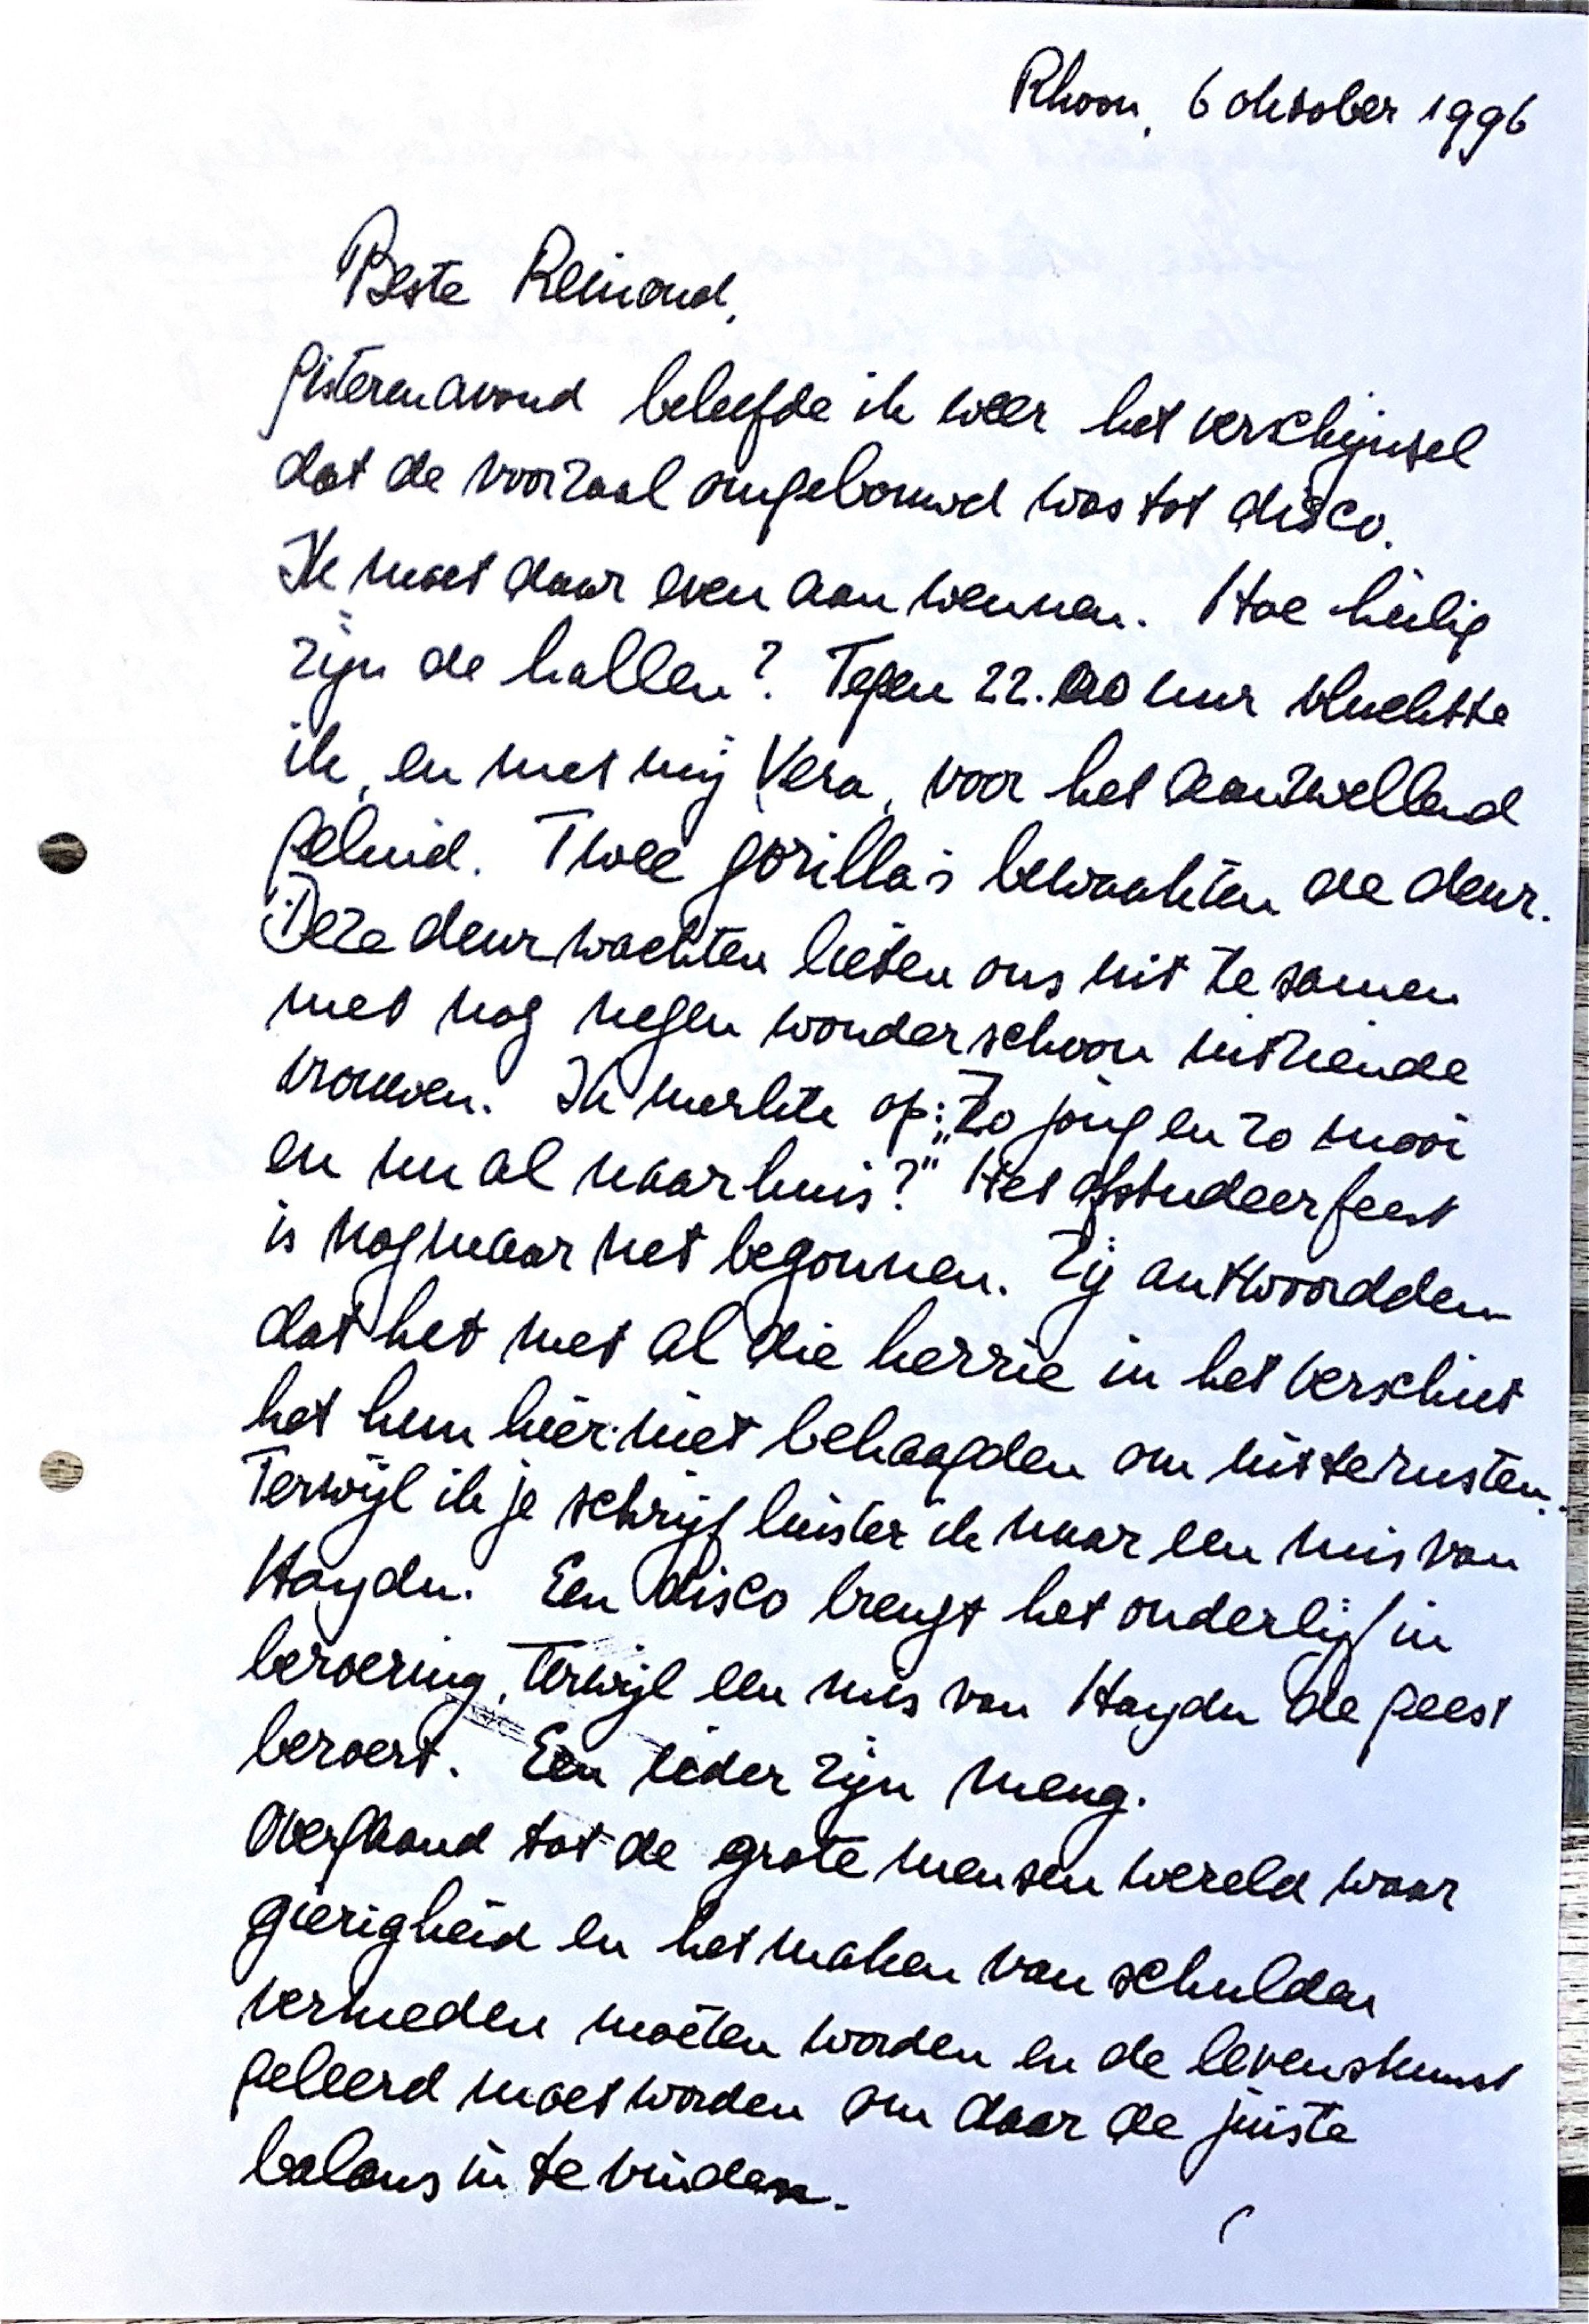 Rhoon, 6 oktober 1996
Beste Reinoud,
Gisterenavond beleefde ik weer het verschijnsel
dat de voorzaal omgebouwd was tot disco.
Ik moet daar even aan wennen. Hoe heilig
zijn de hallen? Tegen 22.00 uur vluchtte
ik, en met mij Vera, voor het aanzwellend
geluid. Twee gorilla's bewaakten de deur.
Deze deurwachten lieten ons uit te samen
met nog negen wonderschoon uitziende
vrouwen. Ik merkte op: „Zo jong en zo mooi
en nu al naar huis?" Het afstudeerfeest
is nog maar net begonnen. Zij antwoordden
dat het met al die herrie in het verschiet
het hun hier niet behaagden om uit te rusten.
Terwijl ik je schrijf luister ik naar een mis van
Haydn. Een disco brengt het onderlijf in
beroering, terwijl een mis van Haydn de geest
beroert. Een ieder zijn meug.
Overgaand tot de grote mensen wereld waar
gierigheid en het maken van schulden
vermeden moeten worden en de levenskunst
geleerd moet worden om daar de juiste
balans in te vinden.